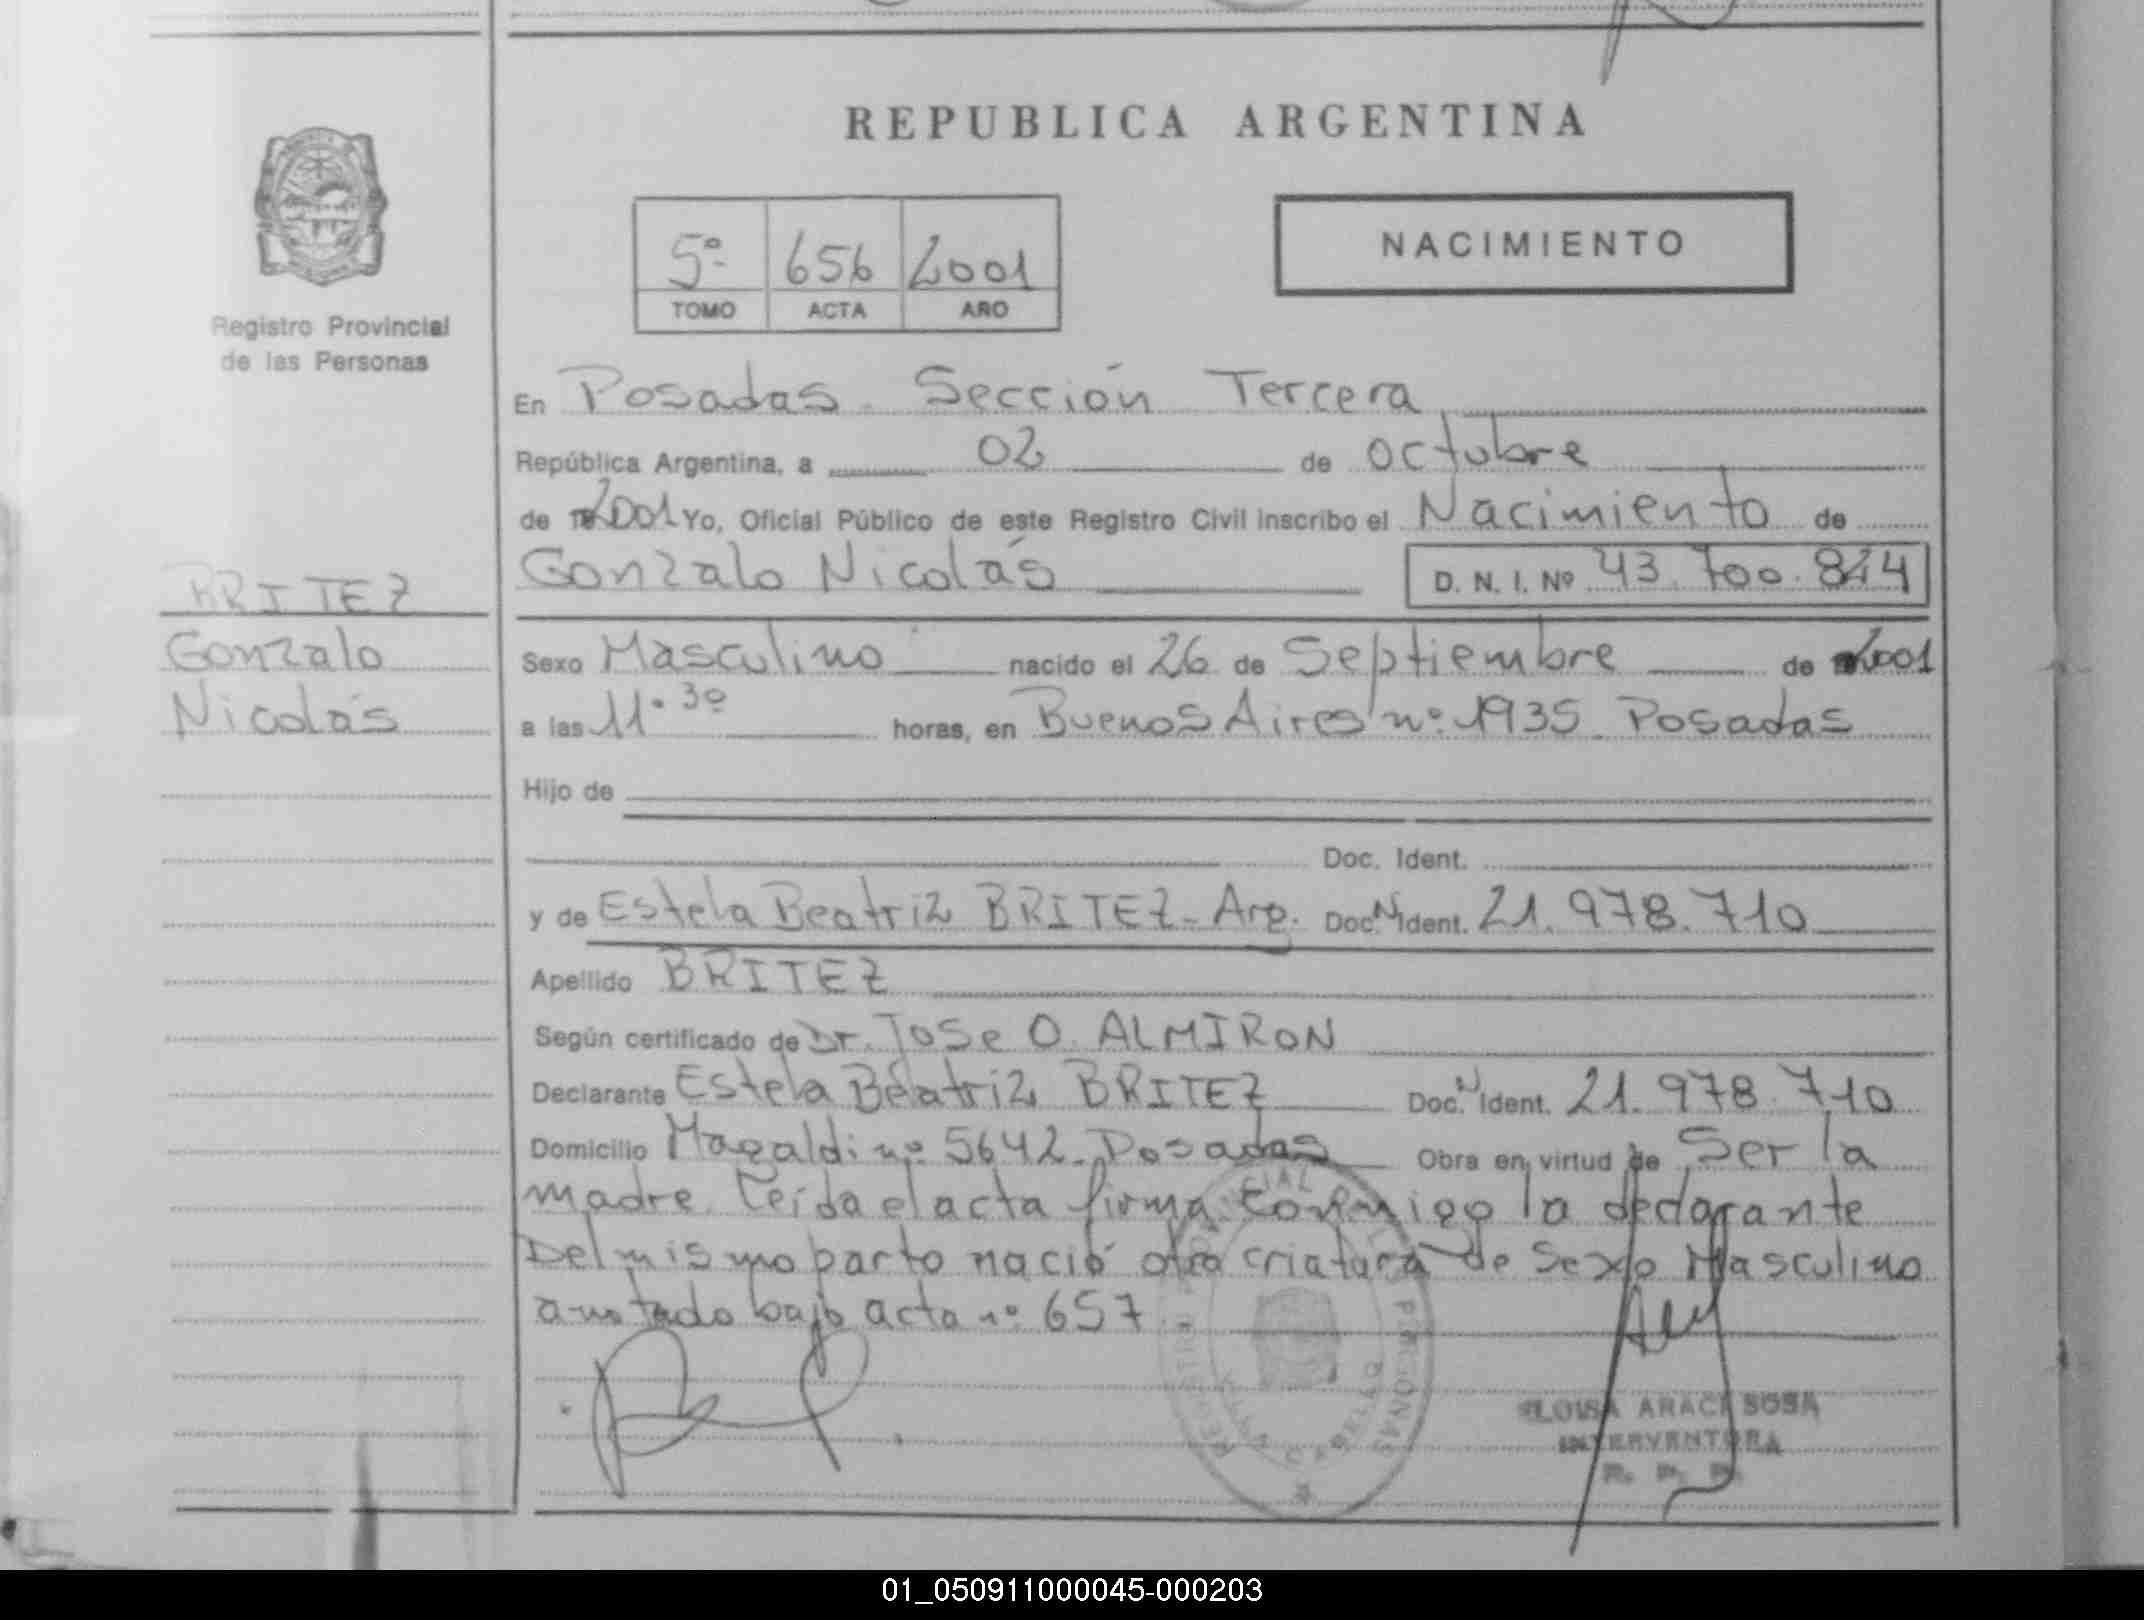 REPUBLICA ARGENTINA
NACIMIENTO
5º 656 2001
TOMO ACTA AÑO
Registro Provincial
de las Personas
En Posadas. Sección Tercera
República Argentina, a 02 de octubre
de 2001 Yo, Oficial Público de este Registro Civil inscribo el Nacimiento de
Gonzalo Nicolás D. N. I. Nº 43.700.844
BRITEZ
Gonzalo
Nicolás
Sexo Masculino nacido el 26 de Septiembre de 2001
a las 11.30 horas, en Buenos Aires nº 1935. Posadas
Hijo de
Doc. Ident.
y de Estela Beatriz BRITEZ - Arg. Doc. N Ident. 21.978.710
Apellido BRITEZ
Según certificado de Dr. Jose O. ALMIRON
Declarante Estela Beatriz BRITEZ Doc. N Ident. 21.978.710
Domicilio Magaldi nº 5642. Posadas Obra en virtud de Ser la
madre. Leída el acta firma conmigo la declarante
Del mismo parto nació otra criatura de Sexo Masculino
anotado bajo acta nº 657.
SOSA
INTERVENTORA
01_050911000045-000203